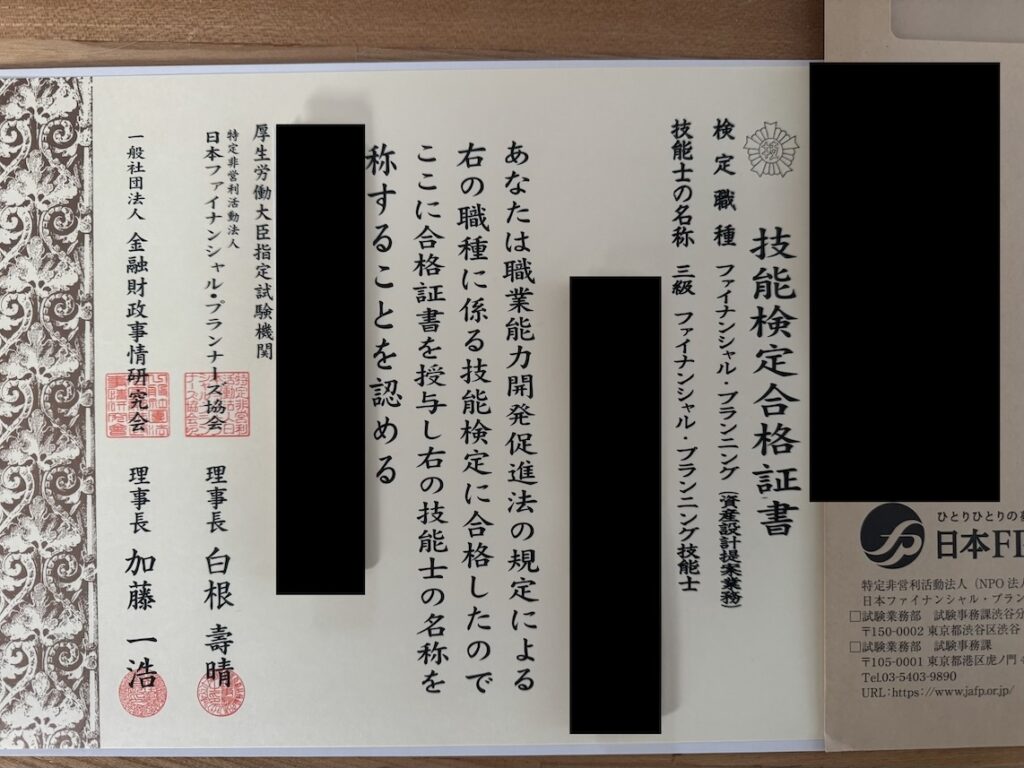 技能検定合格証書
検定職種 ファイナンシャル・プランニング (資産設計提案業務)
技能士の名称 三級 ファイナンシャル・プランニング技能士
あなたは職業能力開発促進法の規定による
右の職種に係る技能検定に合格したので
ここに合格証書を授与し右の技能士の名称を
称することを認める
厚生労働大臣指定試験機関
特定非営利活動法人
日本ファイナンシャル・プランナーズ協会 理事長 白根 壽晴
一般社団法人 金融財政事情研究会 理事長 加藤 一浩
ひとりひとりの
日本F
特定非営利活動法人(NPO法人
日本ファイナンシャル・プラン
□試験業務部 試験事務課渋谷分
〒150-0002 東京都渋谷区渋谷
□試験業務部 試験事務課
〒105-0001 東京都港区虎ノ門
Tel.03-5403-9890
URL:https://www.jafp.or.jp/